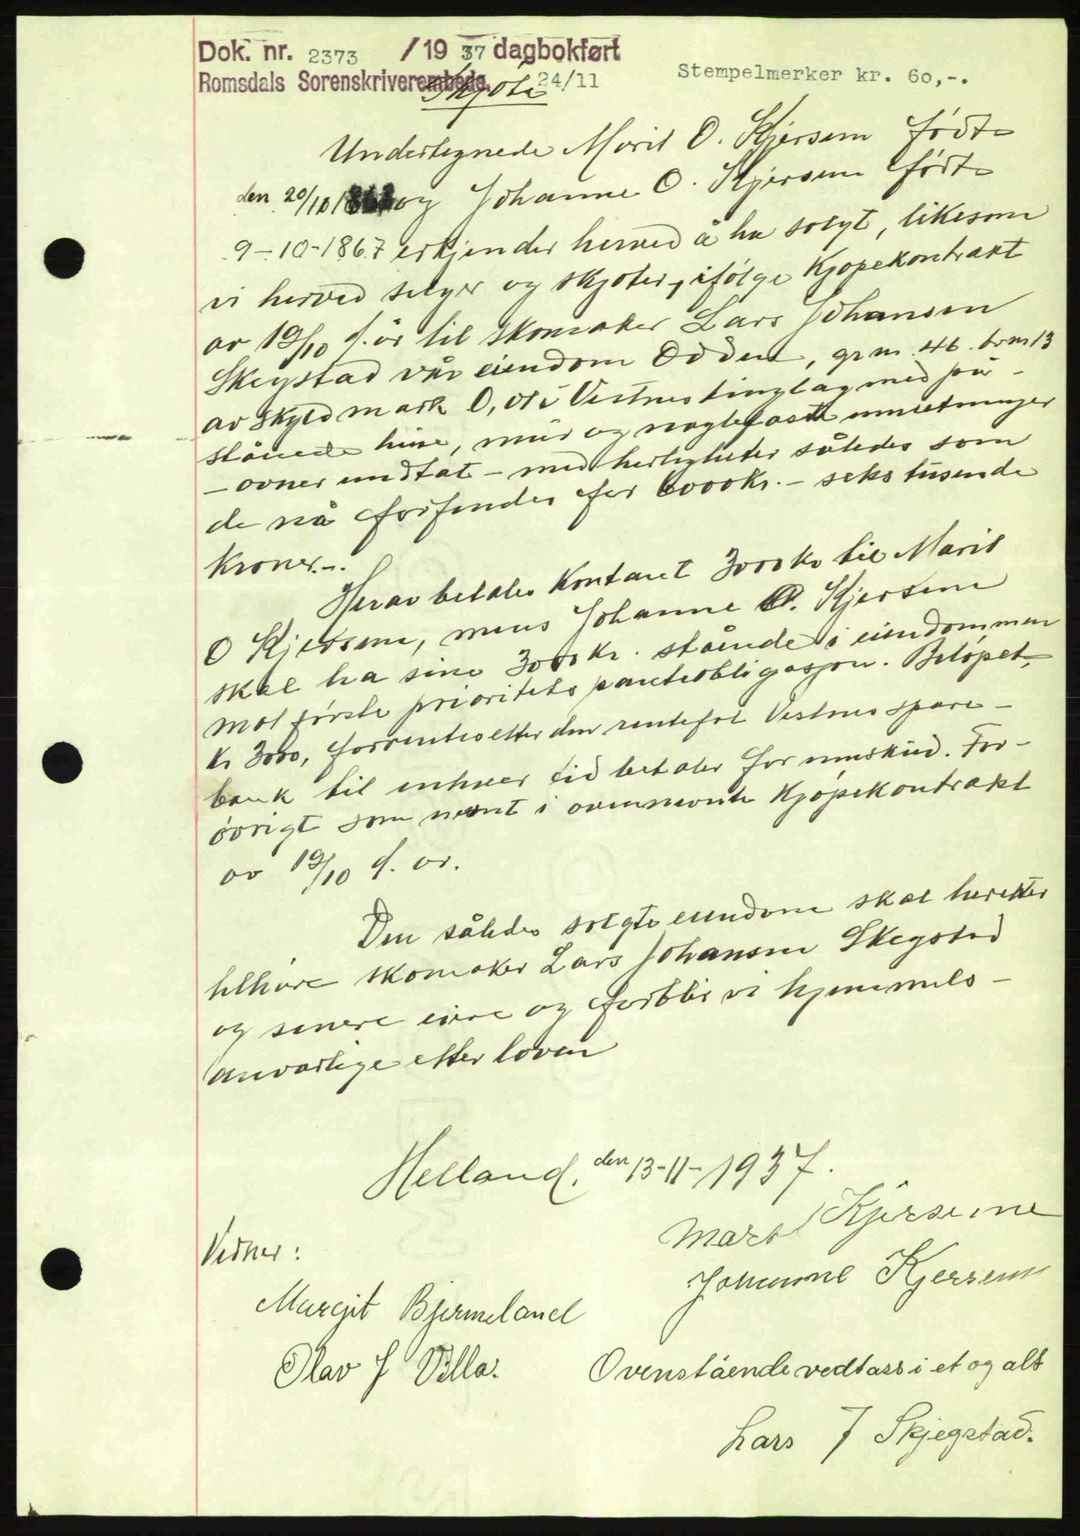 Dok. nr. 2373 /19 37 dagbokført
Romsdals Sorenskriverembede. 24/11
Stempelmerker kr. 60,-.
Skjöte
Undertegnede Marit O. Kjersem födt
den 20/10 1863 og Johanne O. Kjersem födt
9-10-1867 erkjender herved å ha solgt, likesom
vi herved selger og skjöter, ifölge Kjöpekontrakt
av 19/10 d. år til skomaker Lars Johansen
Skegstad vår eiendom Odden, gr nr. 46 br nr 13
av skyld mark 0,01 i Vestnes tinglag med på-
stående huse, mur og naglefaste innretninger
- ovner undtat - med herligheter således som
de nå forfindes for 6000 kr. - seks tusende
kroner.-.
Herav betales kontant 3000 kr til Marit
O Kjersem, mens Johanne O. Kjersem
skal ha sine 3000 kr. stående i eiendommen
mot förste prioritets panteobligasjon. Belöpet,
kr 3000, forrentes etter den rentefot Vestnes spare-
bank til enhver tid betaler for innskud. For-
övrigt som nevnt i ovennevnte Kjöpekontrakt
av 19/10 d. år.
Den således solgte eiendom skal heretter
tilhöre skomaker Lars Johansen Skegstad
og senere eiere og forblir vi hjemmels-
ansvarlige etter loven
Helland, den 13-11-1937.
Marit Kjersem
Johanne Kjersem
Vidner:
Margit Bjermeland
Olav J Villa.
Ovenstående vedtass i et og alt
Lars J Skjegstad.